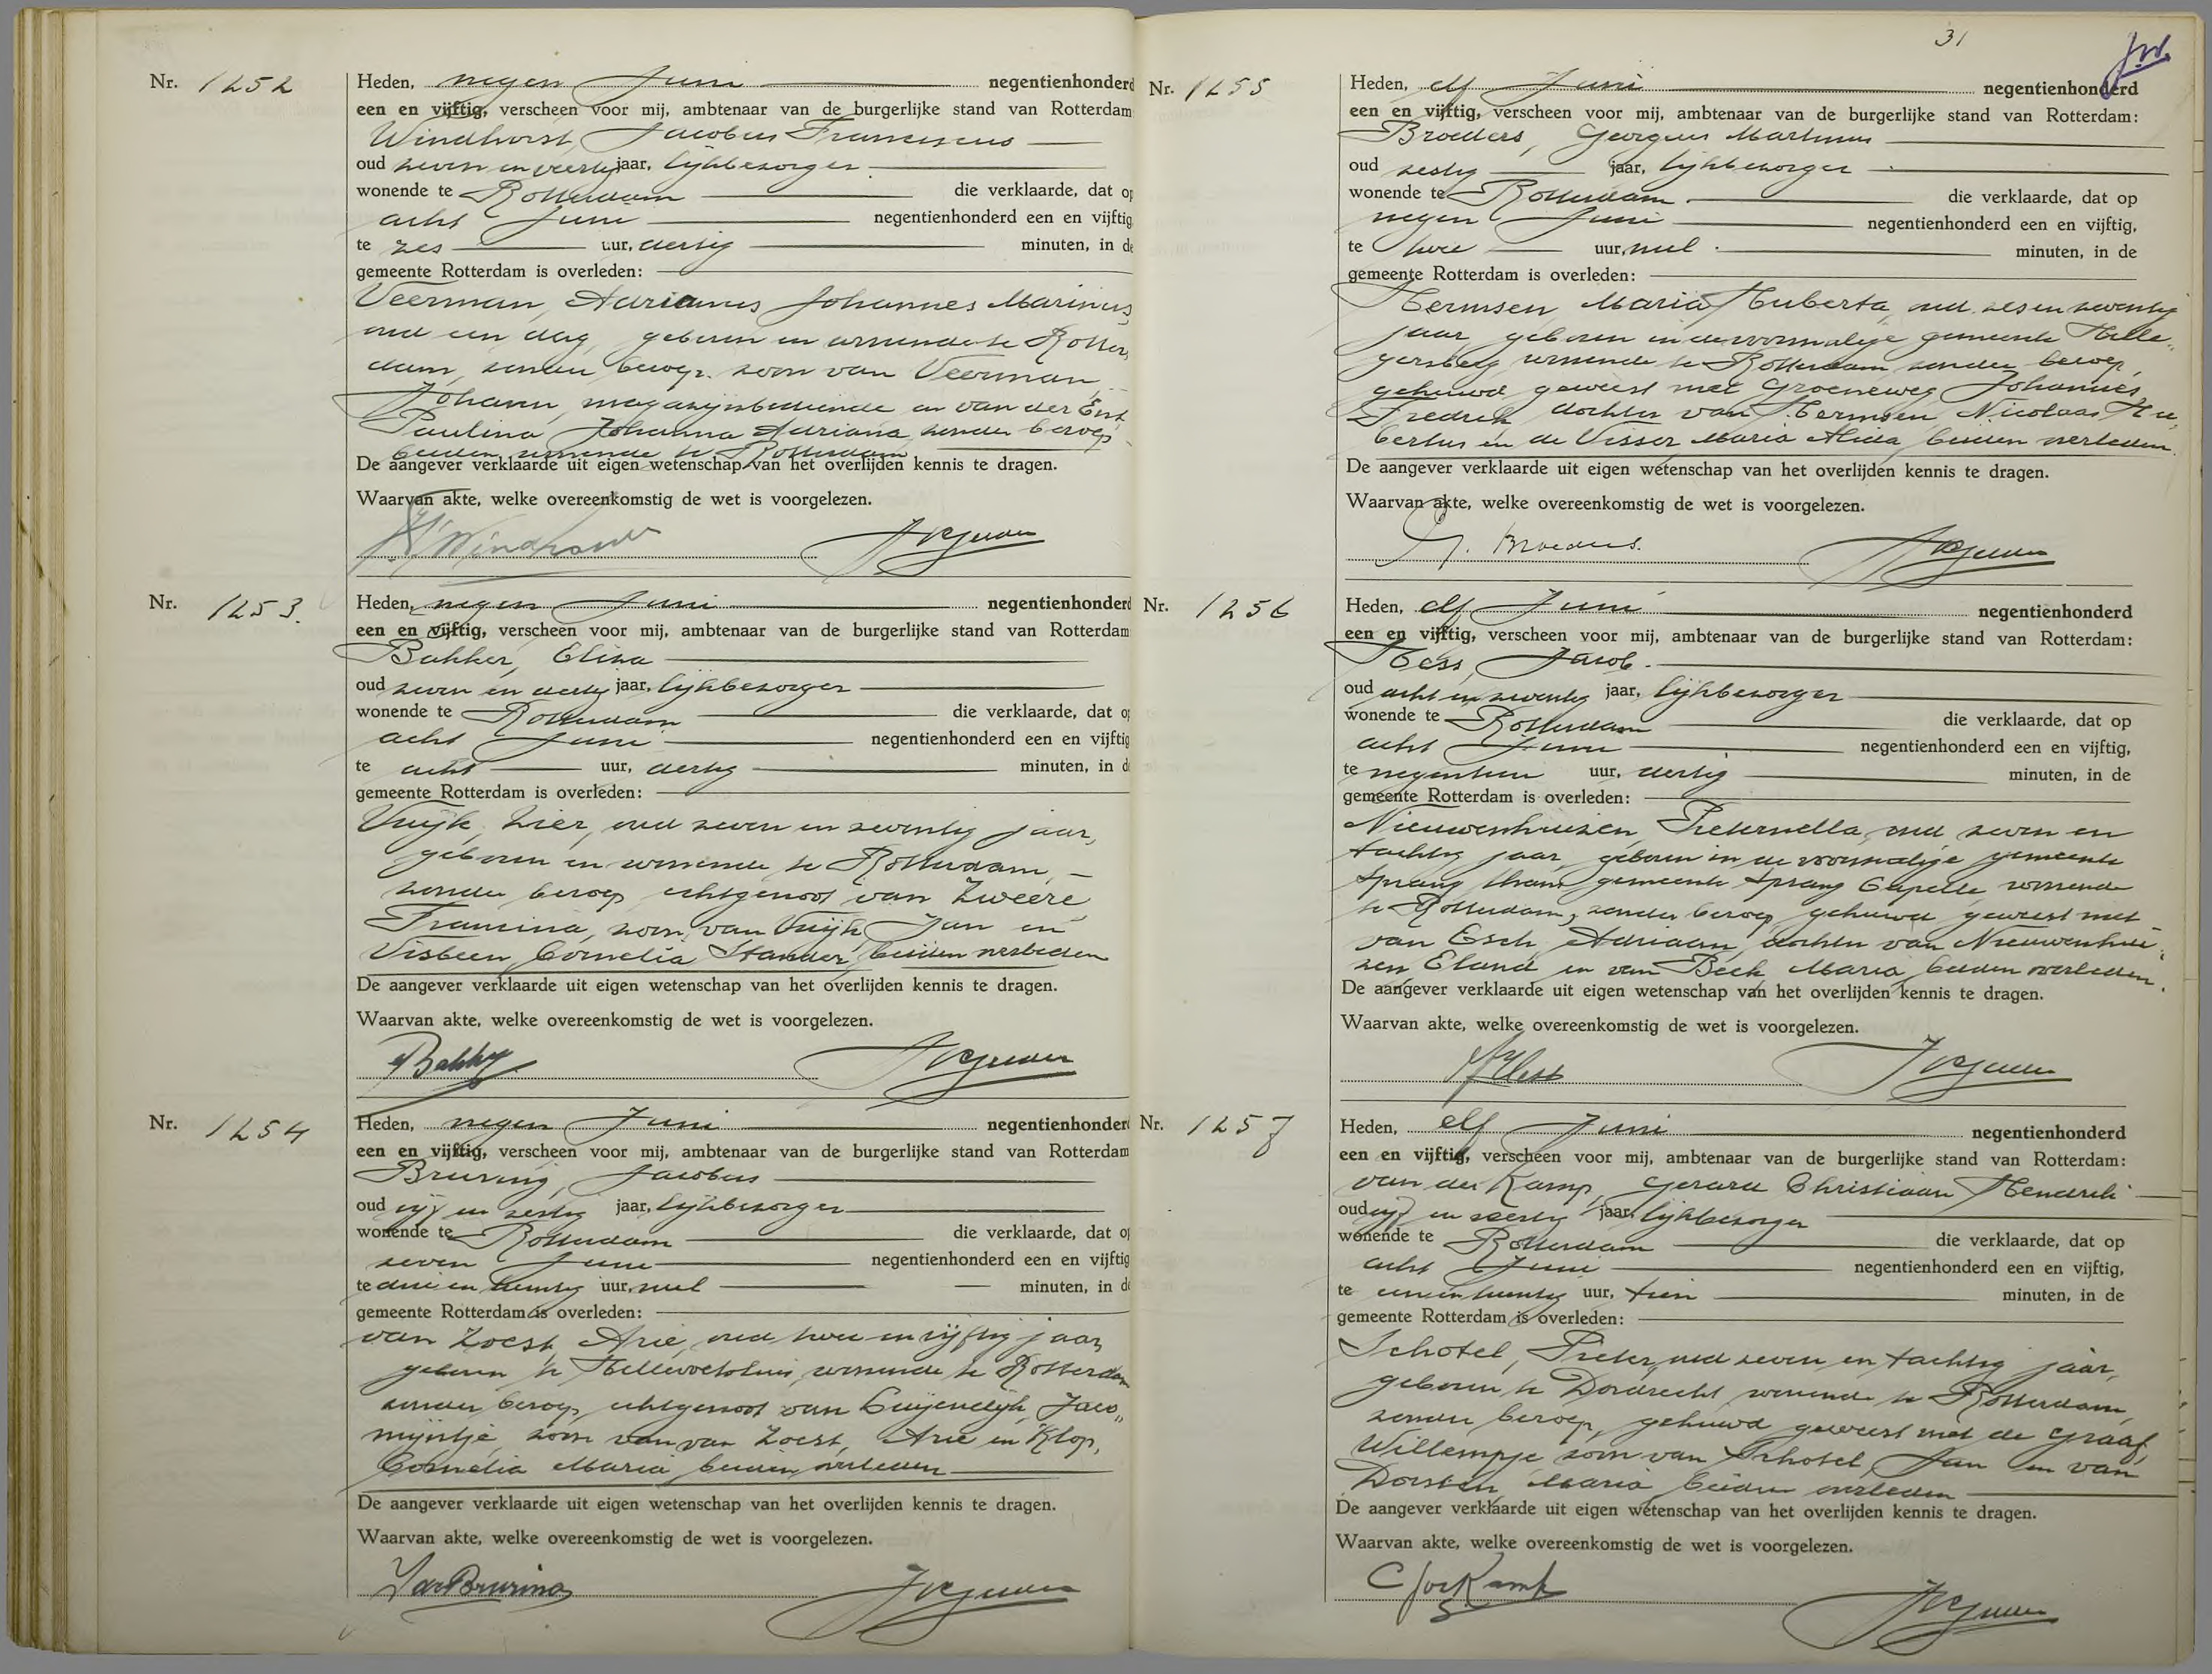 Nr. 1252
Heden, negen Juni negentienhonderd
een en vijftig, verscheen voor mij, ambtenaar van de burgerlijke stand van Rotterdam
Windhorst, Jacobus Franciscus
oud zeven en veertig jaar, lijkbezorger
wonende te Rotterdam die verklaarde, dat op
acht Juni negentienhonderd een en vijftig
te zes uur, dertig minuten, in de
gemeente Rotterdam is overleden:
Veerman, Adrianus Johannes Marinus,
oud een dag, geboren en wonende te Rotter„
dam, zonder beroep, zoon van Veerman
Johann, magazijnbediende en van der Ent
Paulina Johanna Adriana, zonder beroep
beiden wonende te Rotterdam
De aangever verklaarde uit eigen wetenschap van het overlijden kennis te dragen.
Waarvan akte, welke overeenkomstig de wet is voorgelezen.
Nr. 1253.
Heden, negen Juni negentienhonderd
een en vijftig, verscheen voor mij, ambtenaar van de burgerlijke stand van Rotterdam
Bakker, Eliza
oud zeven en dertig jaar, lijkbezorger
wonende te Rotterdam die verklaarde, dat op
acht Juni negentienhonderd een en vijftig
te acht uur, dertig minuten, in de
gemeente Rotterdam is overleden:
Vuijk, Zier, oud zeven en zeventig jaar,
geboren en wonende te Rotterdam,
zonder beroep, echtgenoot van Zweere
Francina, zoon van Vuijk, Jan en
Visbeen Cornelia Stander, beiden overleden
De aangever verklaarde uit eigen wetenschap van het overlijden kennis te dragen.
Waarvan akte, welke overeenkomstig de wet is voorgelezen.
Nr. 1254
Heden, negen Juni negentienhonderd
een en vijftig, verscheen voor mij, ambtenaar van de burgerlijke stand van Rotterdam
Bruring, Jacobus
oud vijf en zestig jaar, lijkbezorger
wonende te Rotterdam die verklaarde, dat op
zeven Juni negentienhonderd een en vijftig
te drie en twintig uur, nul minuten, in de
gemeente Rotterdam is overleden:
van Zoest, Arie, oud twee en vijftig jaar,
geboren te Hellevoetsluis, wonende te Rotterdam
zonder beroep, echtgenoot van Luijendijk, Jaco„
mijntje, zoon van van Zoest, Arie en Klop,
Cornelia Maria, beiden overleden
De aangever verklaarde uit eigen wetenschap van het overlijden kennis te dragen.
Waarvan akte, welke overeenkomstig de wet is voorgelezen.
31
Nr. 1255
Heden, elf Juni negentienhonderd
een en vijftig, verscheen voor mij, ambtenaar van de burgerlijke stand van Rotterdam:
Broeders, Georgius Martinus
oud zestig jaar, lijkbezorger
wonende te Rotterdam die verklaarde, dat op
negen Juni negentienhonderd een en vijftig,
te twee uur, nul minuten, in de
gemeente Rotterdam is overleden:
Hermsen, Maria Huberta, oud zes en zeventig
jaar, geboren in de voormalige gemeente Hille„
gersberg wonende te Rotterdam zonder beroep,
gehuwd geweest met Groeneweg Johannes
Fredrik, dochter van Hermsen Nicolaas Hu„
bertus en de Visser Maria Alida, beiden overleden.
De aangever verklaarde uit eigen wetenschap van het overlijden kennis te dragen.
Waarvan akte, welke overeenkomstig de wet is voorgelezen.
G. Broeders.
Nr. 1256
Heden, elf Juni negentienhonderd
een en vijftig, verscheen voor mij, ambtenaar van de burgerlijke stand van Rotterdam:
Hess, Jacob.
oud acht en zeventig jaar, lijkbezorger
wonende te Rotterdam die verklaarde, dat op
acht Juni negentienhonderd een en vijftig,
te negentien uur, dertig minuten, in de
gemeente Rotterdam is overleden:
Nieuwenhuizen, Pieternella, oud zeven en
tachtig jaar, geboren in de voormalige gemeente
Sprang thans gemeente Sprang Capelle, wonende
te Rotterdam, zonder beroep, gehuwd geweest met
van Esch, Adriaan, dochter van Nieuwenhui„
zen Eland en van Beek Maria, beiden overleden.
De aangever verklaarde uit eigen wetenschap van het overlijden kennis te dragen.
Waarvan akte, welke overeenkomstig de wet is voorgelezen.
Nr. 1257
Heden, elf Juni negentienhonderd
een en vijftig, verscheen voor mij, ambtenaar van de burgerlijke stand van Rotterdam:
van der Kamp, Gerard Christiaan Hendrik
oud vijf en veertig jaar, lijkbezorger
wonende te Rotterdam die verklaarde, dat op
acht Juni negentienhonderd een en vijftig,
te een en twintig uur, tien minuten, in de
gemeente Rotterdam is overleden:
Schotel, Pieter, oud zeven en tachtig jaar,
geboren te Dordrecht, wonende te Rotterdam,
zonder beroep, gehuwd geweest met de Graaf,
Willempje zoon van Schotel, Jan en van
Dorsten, Maria, beiden overleden
De aangever verklaarde uit eigen wetenschap van het overlijden kennis te dragen.
Waarvan akte, welke overeenkomstig de wet is voorgelezen.